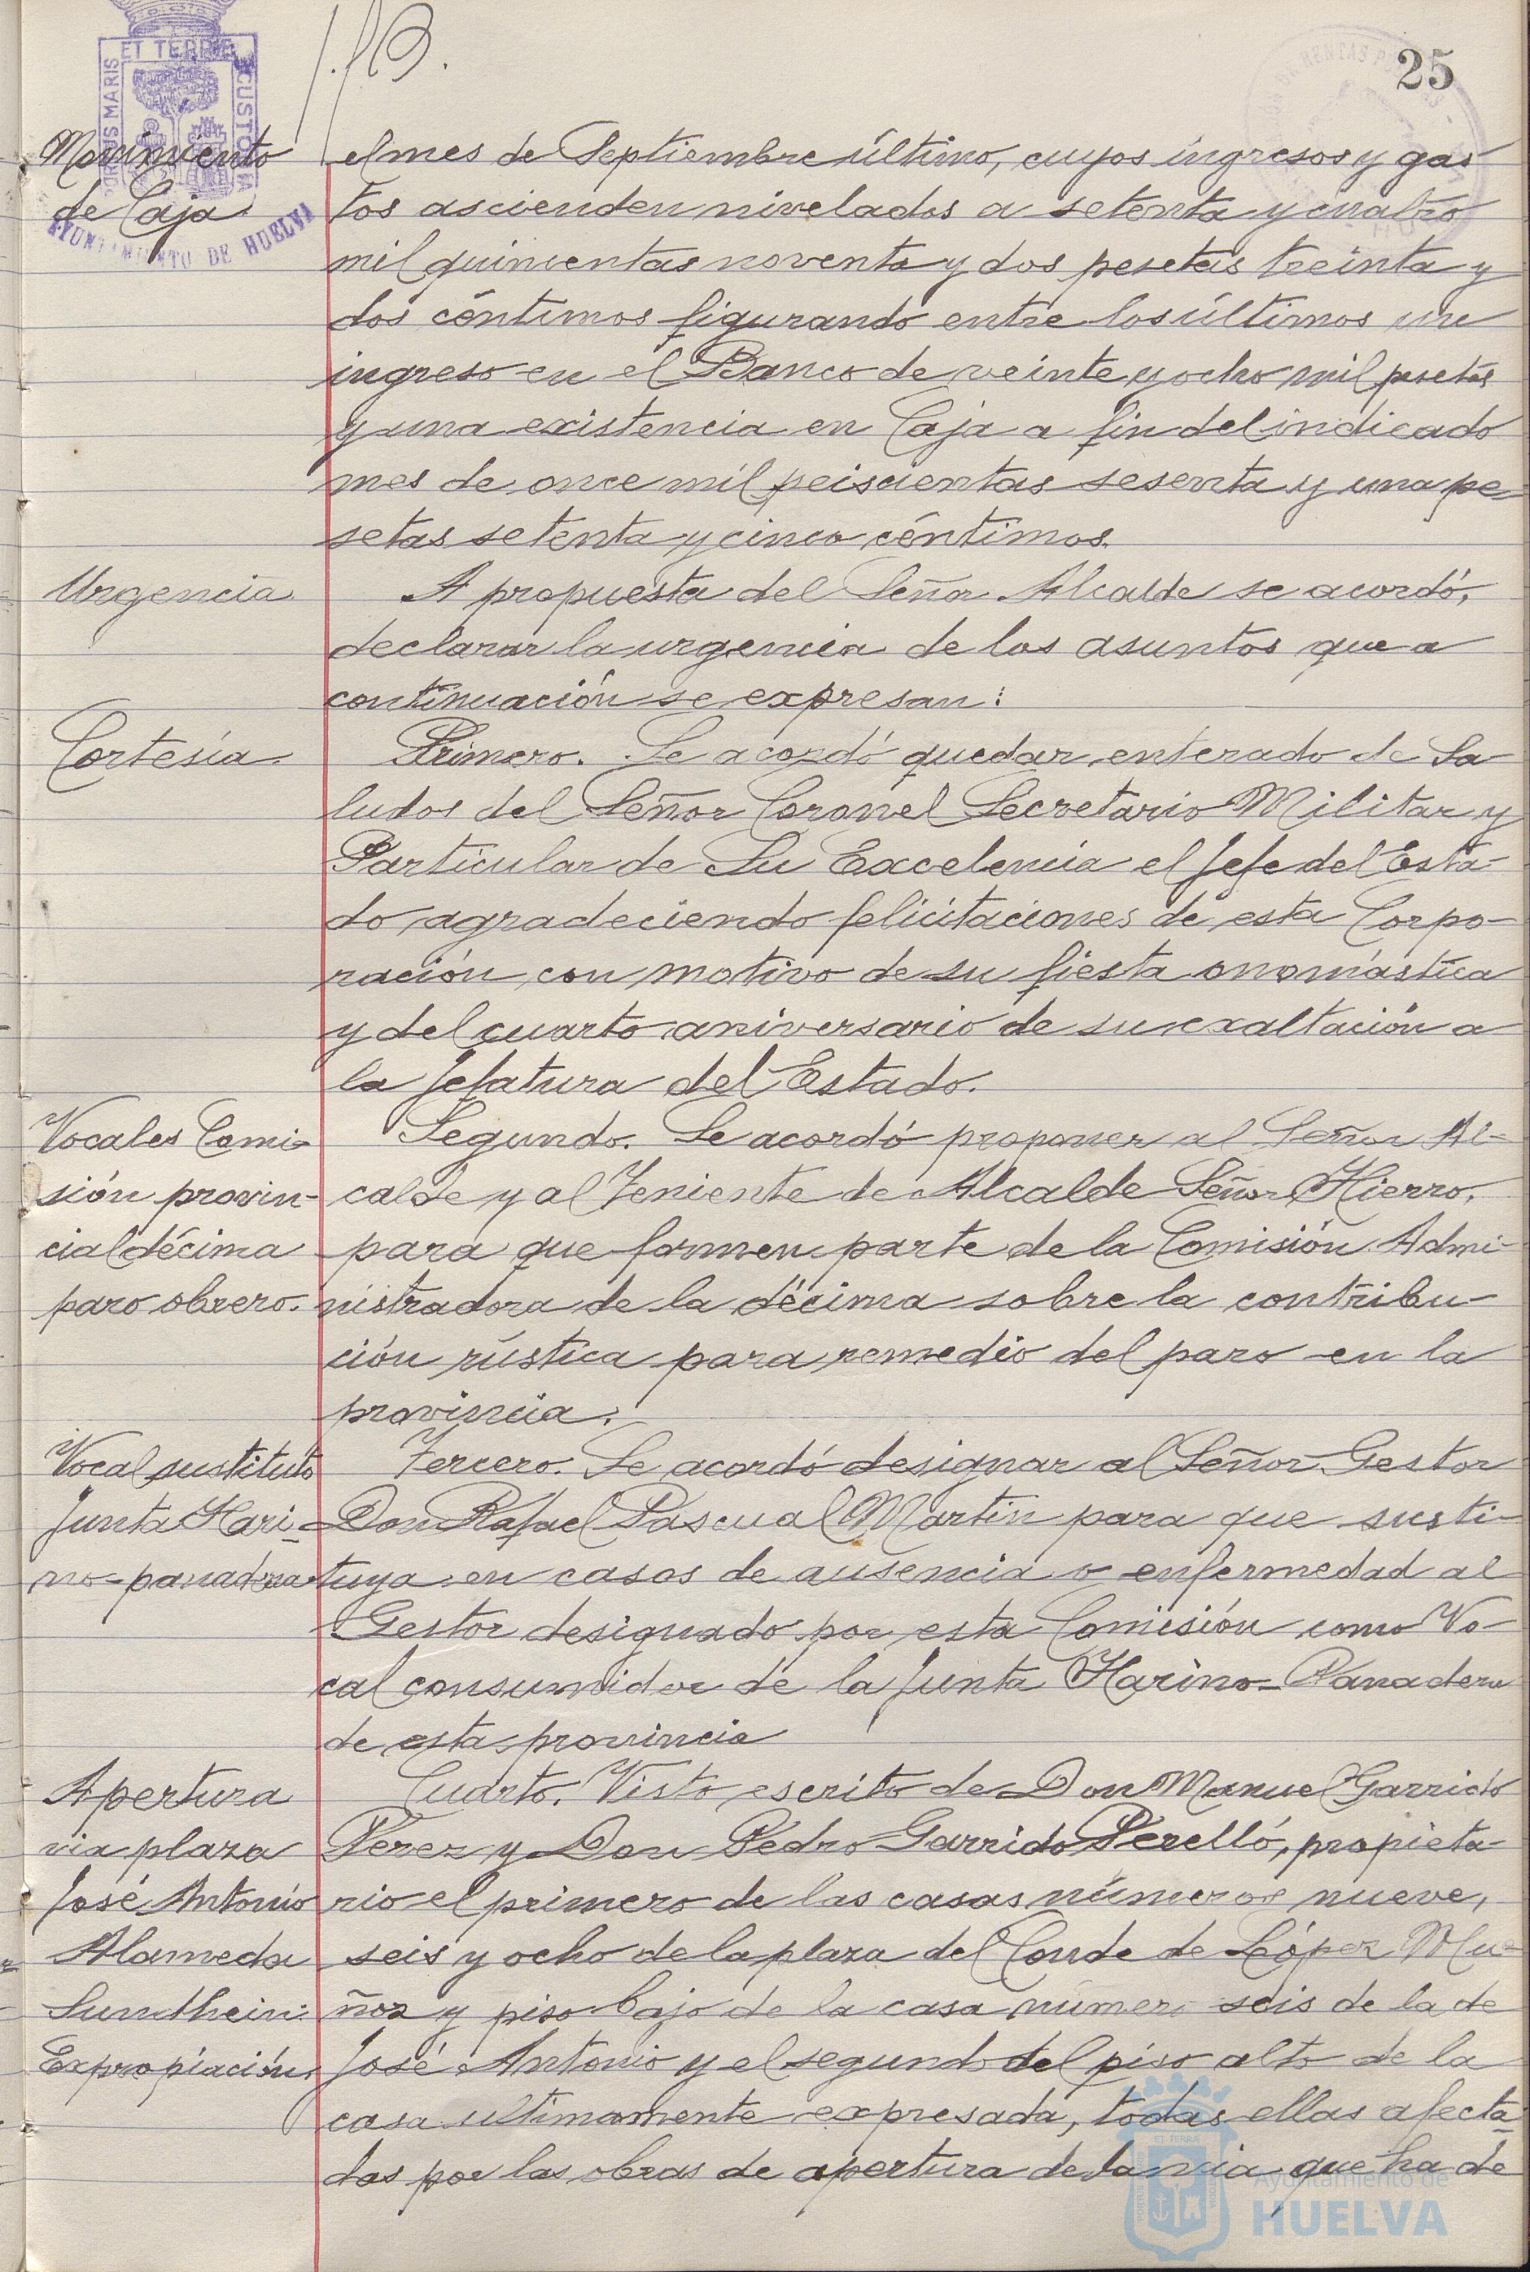 25
PORTUS MARIS ET TERRAE CUSTODIA
AYUNTAMIENTO DE HUELVA
Movimiento
de Caja.
el mes de Septiembre último, cuyos ingresos y gas
tos ascienden nivelados a setenta y cuatro
mil quinientas noventa y dos pesetas treinta y
dos céntimos figurando entre los últimos un
ingreso en el Banco de veinte y ocho mil pesetas
y una existencia en Caja a fin del indicado
mes de once mil seiscientas sesenta y una pe=
setas setenta y cinco céntimos.
Urgencia
A propuesta del Señor Alcalde se acordó,
declarar la urgencia de los asuntos que a
continuación se expresan:
Cortesía.
Primero. Se acordó quedar enterado de Sa-
ludos del Señor Coronel Secretario Militar y
Particular de Su Excelencia el Jefe del Esta-
do agradeciendo felicitaciones de esta Corpo-
ración con motivo de su fiesta onomástica
y del cuarto aniversario de su exaltación a
la Jefatura del Estado.
Vocales Comi-
sión provin-
cial décima
paro obrero.
Segundo. Se acordó proponer al Señor Al-
calde y al Teniente de Alcalde Señor Hierro,
para que formen parte de la Comisión Admi-
nistradora de la décima sobre la contribu-
ción rústica para remedio del paro en la
provincia.
Vocal sustituto
Junta Hari-
no-panadera
Tercero. Se acordó designar al Señor Gestor
Don Rafael Pascual Martin para que susti-
tuya en casos de ausencia o enfermedad al
Gestor designado por esta Comisión como Vo-
cal consumidor de la Junta Harino-Panadera
de esta provincia
Apertura
via plaza
José Antonio
Alameda
Sundhein.
Expropiación.
Cuarto. Visto escrito de Don Manuel Garrido
Perez y Don Pedro Garrido Perelló, propieta-
rio el primero de las casas números nueve,
seis y ocho de la plaza del Conde de López Mu-
ñoz y piso bajo de la casa número seis de la de
José Antonio y el segundo del piso alto de la
casa ultimamente expresada, todas ellas afecta-
das por las obras de apertura de la via que ha de
Ayuntamiento de
HUELVA